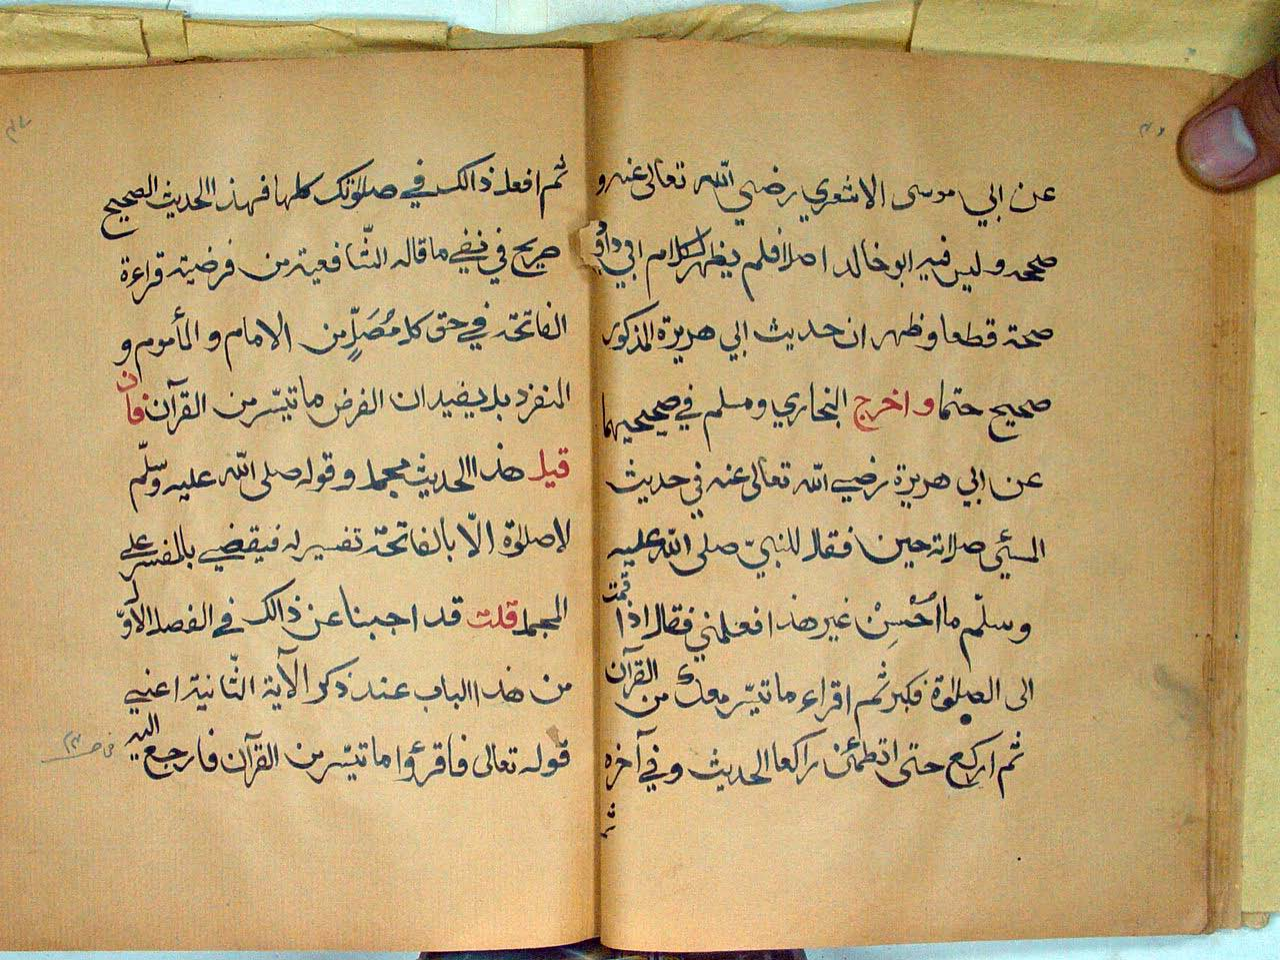 عن ابي موسى الاشعري رضي الله تعالى عنه و
صححه وليس فيه ابو خالد اصلا فلم يظهر لكلام ابي داؤد
صحة قطعا وظهر ان حديث ابي هريرة المذكور
صحيح حتما و اخرج البخاري ومسلم في صحيحيهما
عن ابي هريرة رضي الله تعالى عنه في حديث
المسئي صلاته حين فقال للنبيّ صلى الله عليه
وسلّم ما اُحْسِنْ غير هذ افعلمني فقال اذا قمت
الى الصلوة فكبر ثم اقراء ما تيسّر معكَ من القرآن
ثم اركع حتى اتطمئن راكعا الحديث و في آخره
ثم
ثم افعل ذالك في صلوتك كلها فهذ االحديث الصحيح
صريح في نفي ما قاله الشّافعية من فرضية قراءة
الفاتحة في حق كل مُصَلٍّ من الامام و المأموم و
المنفرد بل يفيد ان الفرض ما تيسّر من القرآن فان
قيل هذ االحديث مجمل و قوله صلى الله عليه وسلّم
لاصلوة الّا بالفاتحة تفسير له فيقضي بالمفسر على
المجمل قلت قد اجبنا عن ذالك في الفصل الاوّل
من هذ االباب عند ذكر الآية الثّانية اعني
قوله تعالى فاقرؤا ما تيسّر من القرآن فارجع اليه